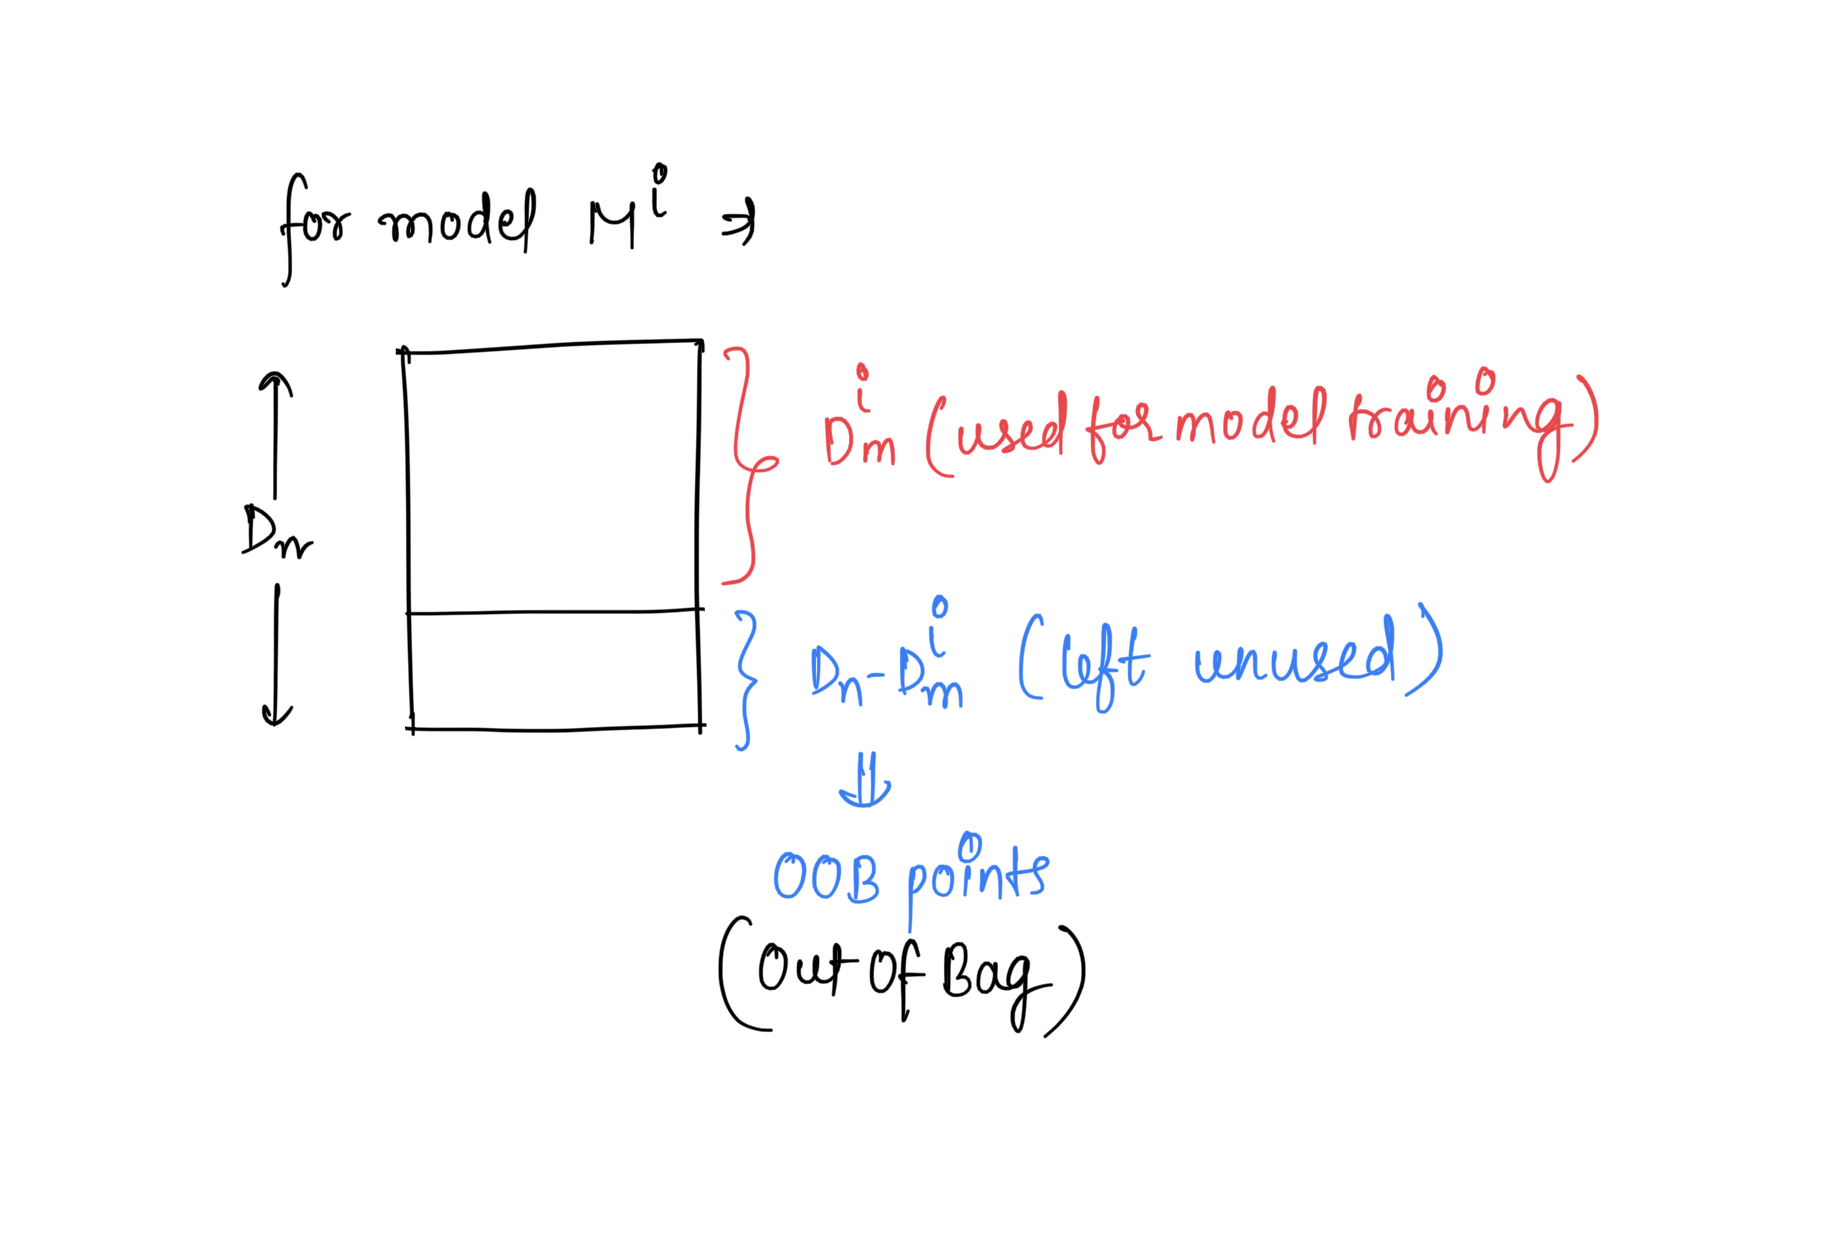 for model Mⁱ ⇒
Dₘⁱ (used for model training)
Dₙ
Dₙ-Dₘⁱ (left unused)
⇓
OOB points
(Out Of Bag)